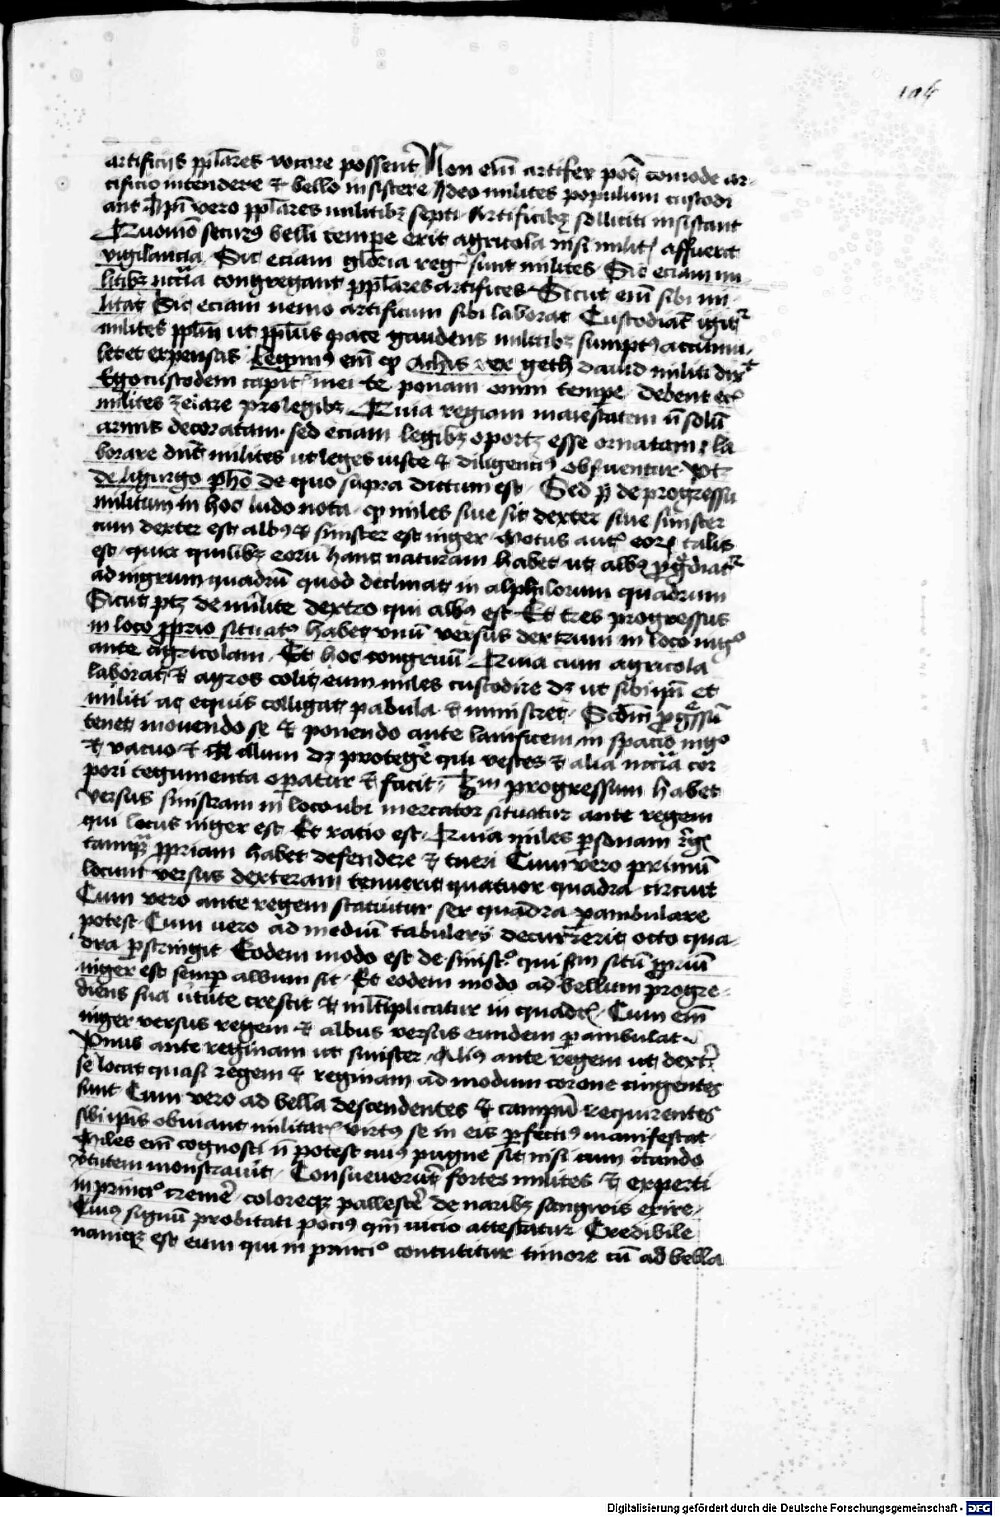 104
artificijs pplares vocare possent Non eni artifex pot comode ar-
tificio intendere et bello insistere Ideo milites populum custodi
ant Ipi vero pplares militibz septi Artificibz solliciti insistant
Quomo securus belli tempe erit agricola nisi milit affuerit
vigilancia Sic eciam gloria reg sunt milites Sic eciam mi
litibz nccia congregant pplares artifices Sicut eni sibi mi-
litat Sic eciam nemo artificum sibi laborat Custodiat igitr
milites pplm ut pplus pace gaudens militibz sumptus accumu-
let et expensas Legimus eni qp Achis rex geth dauid militi dixt
Ego custodem capit mei te ponam omni tempe Debent et
milites zelare pro legibz Quia regiam maiestatem n solu
armis decoratam sed eciam legibz oportz esse ornatam la
borare dnt milites ut leges iuste et diligencius obseruentur Vt
de ligurgo pho de quo supra dictum est Sed de progressu
militum in hoc ludo nota qp miles siue sit dexter siue sinister
cum dexter est albus et sinister est niger Motus aut eor talis
est quia quilibz eoru hanc naturam habet ut albus pgrediatr
ad nigrum quadru quod declinat in alphilorum quadrum
Sicut ptz de milite dextro qui albus est Et tres progressus
in loco pprio situatus habet vnu versus dextrum in loco nigo
ante agricolam Et hoc congruu Quia cum agricola
laborat et agros colit eum miles custodire dz ut sibi ipi et
militi ac equis colligat pabula et ministret Scdm pgssu
tenet mouendo se et ponendo ante lanificem in spacio nigo
et vacuo et illum dz protege qui vestes et alia nccia cor
pori tegumenta opatur et facit progressum habet
versus sinistram in loco ubi mercator situatur ante regem
qui locus niger est Et ratio est Quia miles psonam regis
tamqz ppriam habet defendere et tueri Cum vero primu
locum versus dexteram tenuerit quatuor quadra circuit
Cum vero ante regem statuitur sex quadra pambulare
potest Cum uero ad mediu tabulerij decurrerit octo qua-
dra pstringit Eodem modo est de sinistro qui scm situ ppriu
niger est semp album sit Et eodem modo ad bellum progre-
diens sua utute crescit et mltiplicatur in quadris Cum eni
niger versus regem et albus versus eundem pambulat
Vnus ante reginam ut sinister Alius ante regem ut dextr
se locat quasi regem et reginam ad modum corone cingentes
sunt Cum vero ad bella descendentes et campu requirentes
sibi ipis obuiant militar virtus se in eis pfectius manifestat
Miles eni cognosci n potest cuius pugne sit nisi cum ctando
vtutem monstrauit Consueuerut fortes milites et experti
in principio tremere coloreqz pallescere de naribz sangwis exire
Cuius signu probitati pocius qm uicio attestatur Credibile
namqz est eum qui in principio contutitur timore cu ad bella
Digitalisierung gefördert durch die Deutsche Forschungsgemeinschaft - DFG